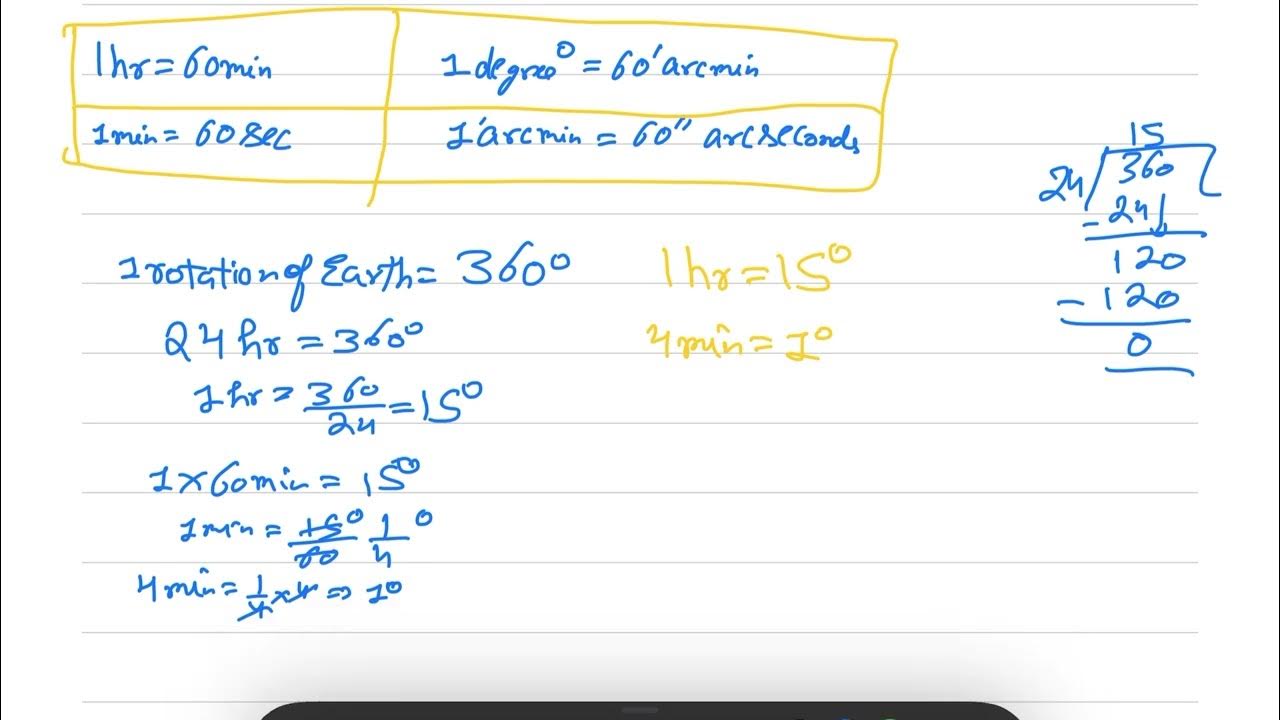 1hr = 60min
1 degree° = 60' arcmin
1min = 60sec
1' arcmin = 60" arcseconds
1 rotation of Earth = 360°
24 hr = 360°
1 hr = 360/24 = 15°
1 × 60min = 15°
1min = 15°/60 1/4°
4min = 1/4 × 4 ⇒ 1°
1 hr = 15°
4 min = 1°
15
24 360
- 24↓
120
- 120
0